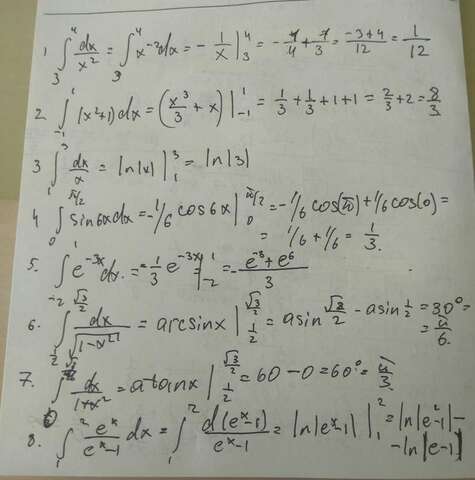 1 ∫₃⁴ dx/x² = ∫₃⁴ x⁻²dx = - 1/x |₃⁴ = - 1/4 + 1/3 = (-3+4)/12 = 1/12
2. ∫₋₁¹ (x²+1)dx = (x³/3 + x) |₋₁¹ = 1/3 + 1/3 + 1 + 1 = 2/3 + 2 = 8/3
3 ∫₁³ dx/x = ln|x| |₁³ = ln|3|
4 ∫₀^(π/2) sin6xdx = -1/6 cos6x |₀^(π/2) = -1/6 cos(π) + 1/6 cos(0) =
= 1/6 + 1/6 = 1/3.
5. ∫₋₂¹ e^(-3x) dx = -1/3 e^(-3x) |₋₂¹ = (-e^(-3) + e^6)/3
6. ∫_(1/2)^(√3/2) dx/√(1-x²) = arcsinx |_(1/2)^(√3/2) = asin √3/2 - asin 1/2 = 30° =
= π/6.
7. ∫ dx/(1+x²) = atanx |_(1/2)^(√3/2) = 60 - 0 = 60° = π/3.
8. ∫₁² e^x/(e^x-1) dx = ∫₁² d(e^x-1)/(e^x-1) = ln|e^x-1| |₁² = ln|e²-1| -
- ln|e-1|